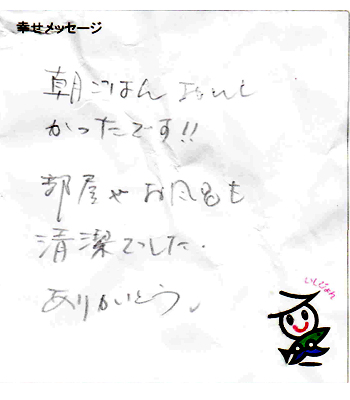 幸せメッセージ
朝ごはん おいし
かったです!!
部屋やお風呂も
清潔でした.
ありがとう。